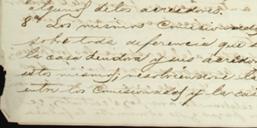 alguno de los acredores.
8ª Los mismos Comisionad
sobre toda diferencia que s
la casa deudora y sus acredor
estos mismos, resolviendo l
entre los Comisionados y la cas